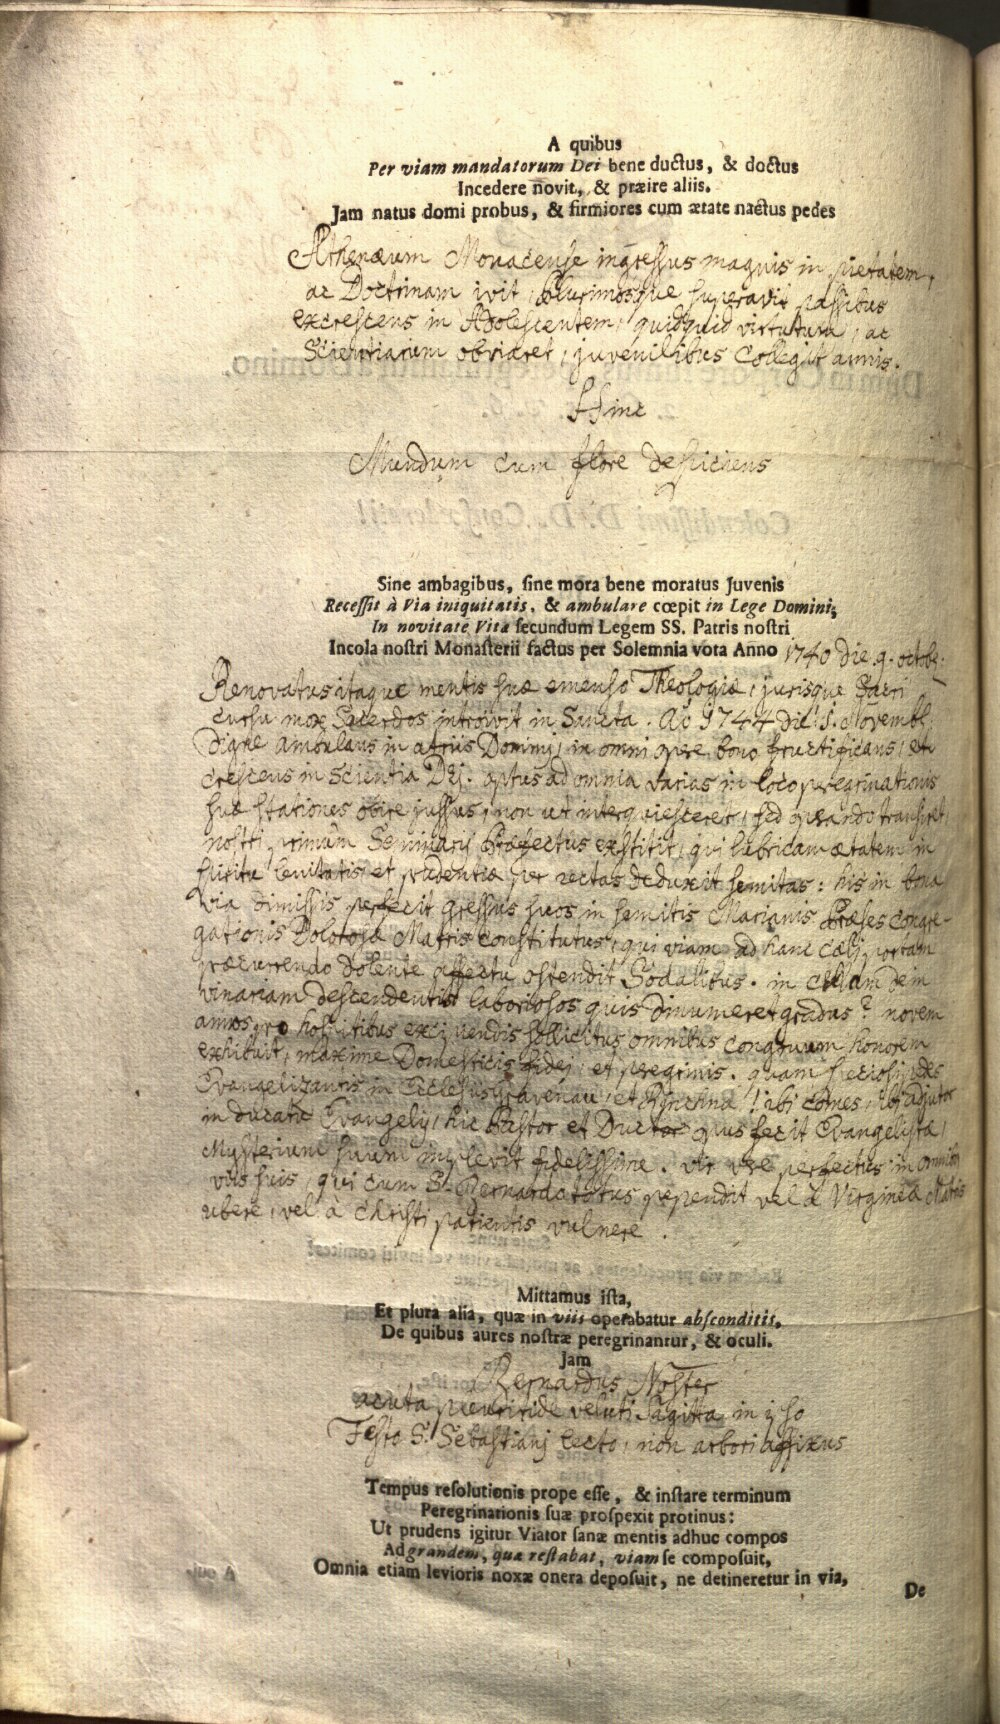 A quibus
Per viam mandatorum Dei bene ductus, & doctus
Incedere novit, & præire aliis.
Jam natus domi probus, & firmiores cum ætate nactus pedes
Athenæum Monacense ingressus magnis in pietatem,
ac Doctrinam ivit, plurimosque superavit passibus
excrescens in Adolescentem, quidquid virtutum, ac
Scientiarum obviaret, juvenilibus collegit annis.
Hinc
Mundum cum flore despiciens
Sine ambagibus, sine mora bene moratus Juvenis
Recessit à Via iniquitatis, & ambulare cœpit in Lege Domini,
In novitate Vitæ secundum Legem SS. Patris nostri
Incola nostri Monasterii factus per Solemnia vota Anno 1740 die 9. octobr.
Renovatus itaque mentis suæ emenso Theologiæ, jurisque Sacri
cursu mox Sacerdos introivit in Sancta. Ao 1744 die 1. Novembl.
Digne ambulans in atriis Dominj, in omni opere bono fructificans, et
crescens in scientia Dej. aptus ad omnia varias in loco peregrinationis
suæ stationes obire jussus, non ut interquiesceret, sed operando transiret,
nostri primum Seminarij Præfectus exstitit, qui lubricam ætatem in
spiritu lenitatis et prudentiæ per rectas deduxit semitas: his in bona
via dimissis perfecit gressus suos in semitis Marianis Præses congre-
gationis Dolorosæ Matris constitutus, qui viam ad hanc cœlj portam
præcurrendo dolente affectu ostendit Sodalibus. in cellam dein
vinariam descendentis laboriosos quis dinumeret gradus? novem
annos pro hospitibus excipiendis sollicitus omnibus congruum honorem
exhibuit, maxime Domesticis fidej, et peregrinis. quam speciosi pedes
Evangelizantis in Ecclesiis Gravenau, et Rinchna! ibi comes, ibi adjutor
in ducatu Evangelij, hic Pastor et Ductor opus fecit Evangelistæ,
Mysterium suum implevit fidelissime. vir vere perfectus in omnibus
viis suis, qui cum S. Bernardo totus pependit vel à Virginea Matris
ubere, vel à Christi patientis vulnere.
Mittamus ista,
Et plura alia, quæ in viis operabatur absconditis,
De quibus aures nostræ peregrinantur, & oculi.
Jam
Bernardus Noster
acuta pleuritide veluti Sagitta in ipso
Festo S. Sebastianj lecto, non arbori affixus
Tempus resolutionis prope esse, & instare terminum
Peregrinationis suæ prospexit protinus:
Ut prudens igitur Viator sanæ mentis adhuc compos
Ad grandem, quæ restabat, viam se composuit,
Omnia etiam levioris noxæ onera deposuit, ne detineretur in via,
De